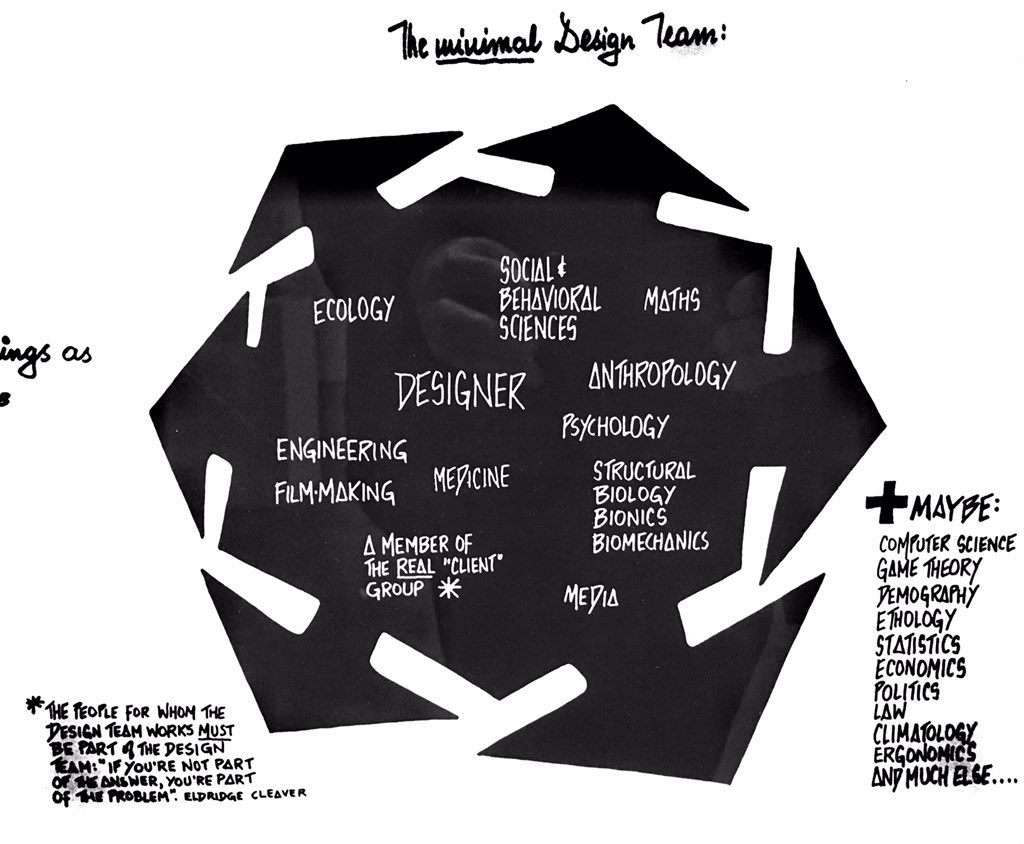 The minimal Design Team:
SOCIAL &
BEHAVIORAL
SCIENCES
ECOLOGY
MATHS
DESIGNER
ANTHROPOLOGY
PSYCHOLOGY
ENGINEERING
FILM-MAKING
MEDICINE
STRUCTURAL
BIOLOGY
BIONICS
BIOMECHANICS
A MEMBER OF
THE REAL "CLIENT"
GROUP *
MEDIA
ings as
+ MAYBE:
COMPUTER SCIENCE
GAME THEORY
DEMOGRAPHY
ETHOLOGY
STATISTICS
ECONOMICS
POLITICS
LAW
CLIMATOLOGY
ERGONOMICS
AND MUCH ELSE....
*THE PEOPLE FOR WHOM THE
DESIGN TEAM WORKS MUST
BE PART of THE DESIGN
TEAM: "IF YOU'RE NOT PART
OF THE ANSWER, YOU'RE PART
OF THE PROBLEM". ELDRIDGE CLEAVER